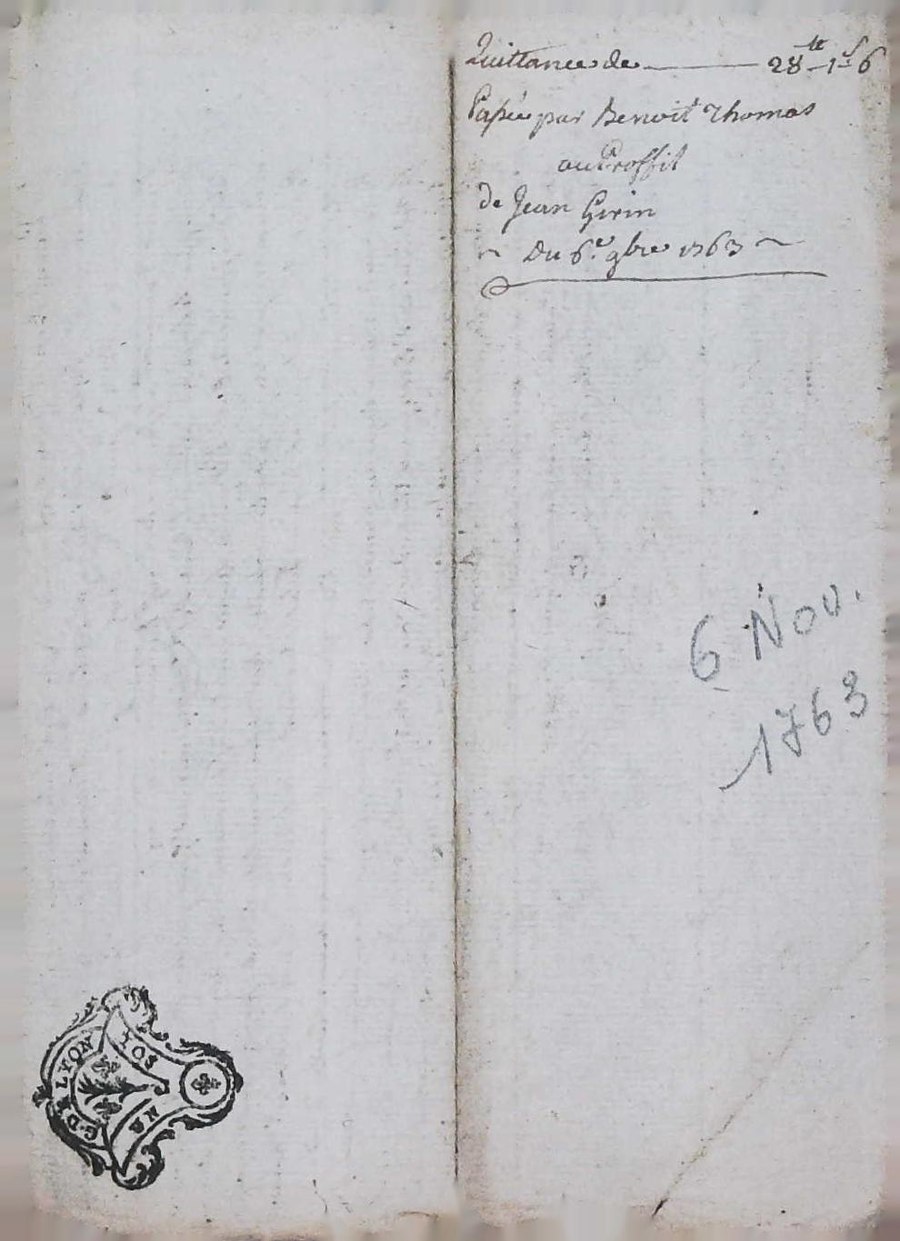 Quittance de — 28ᵗᵗ 1ˢ 6
Passée par Benoit Thomas
au Proffit
de Jean Girin
~ Du 6.ᵉ 9bre 1763 ~
6 Nov.
1763
G. DE LYON
SOL